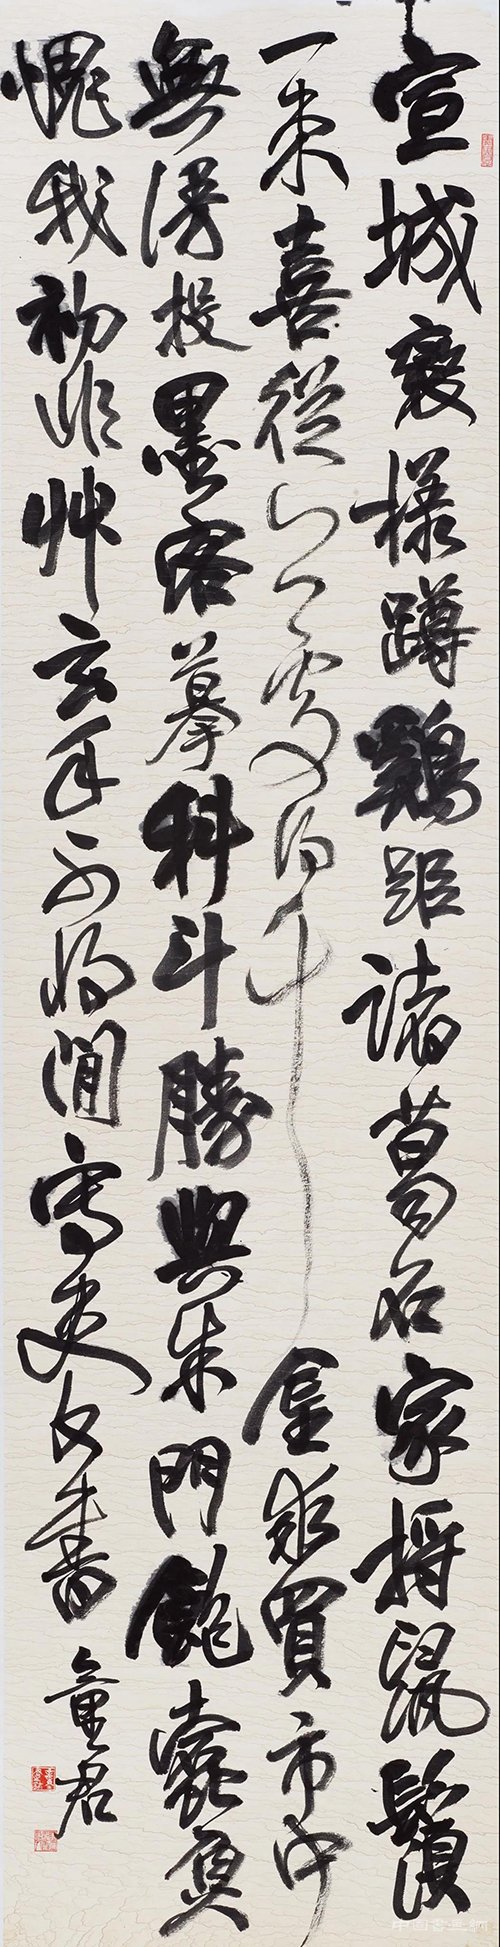 宣城變樣蹲鷄距諸葛名家捋鼠鬚
一束喜從公處得千金求買市中
無漫投墨客摹科斗勝與朱門飽蠹魚
愧我初非艸玄手不將閒寫吏文書